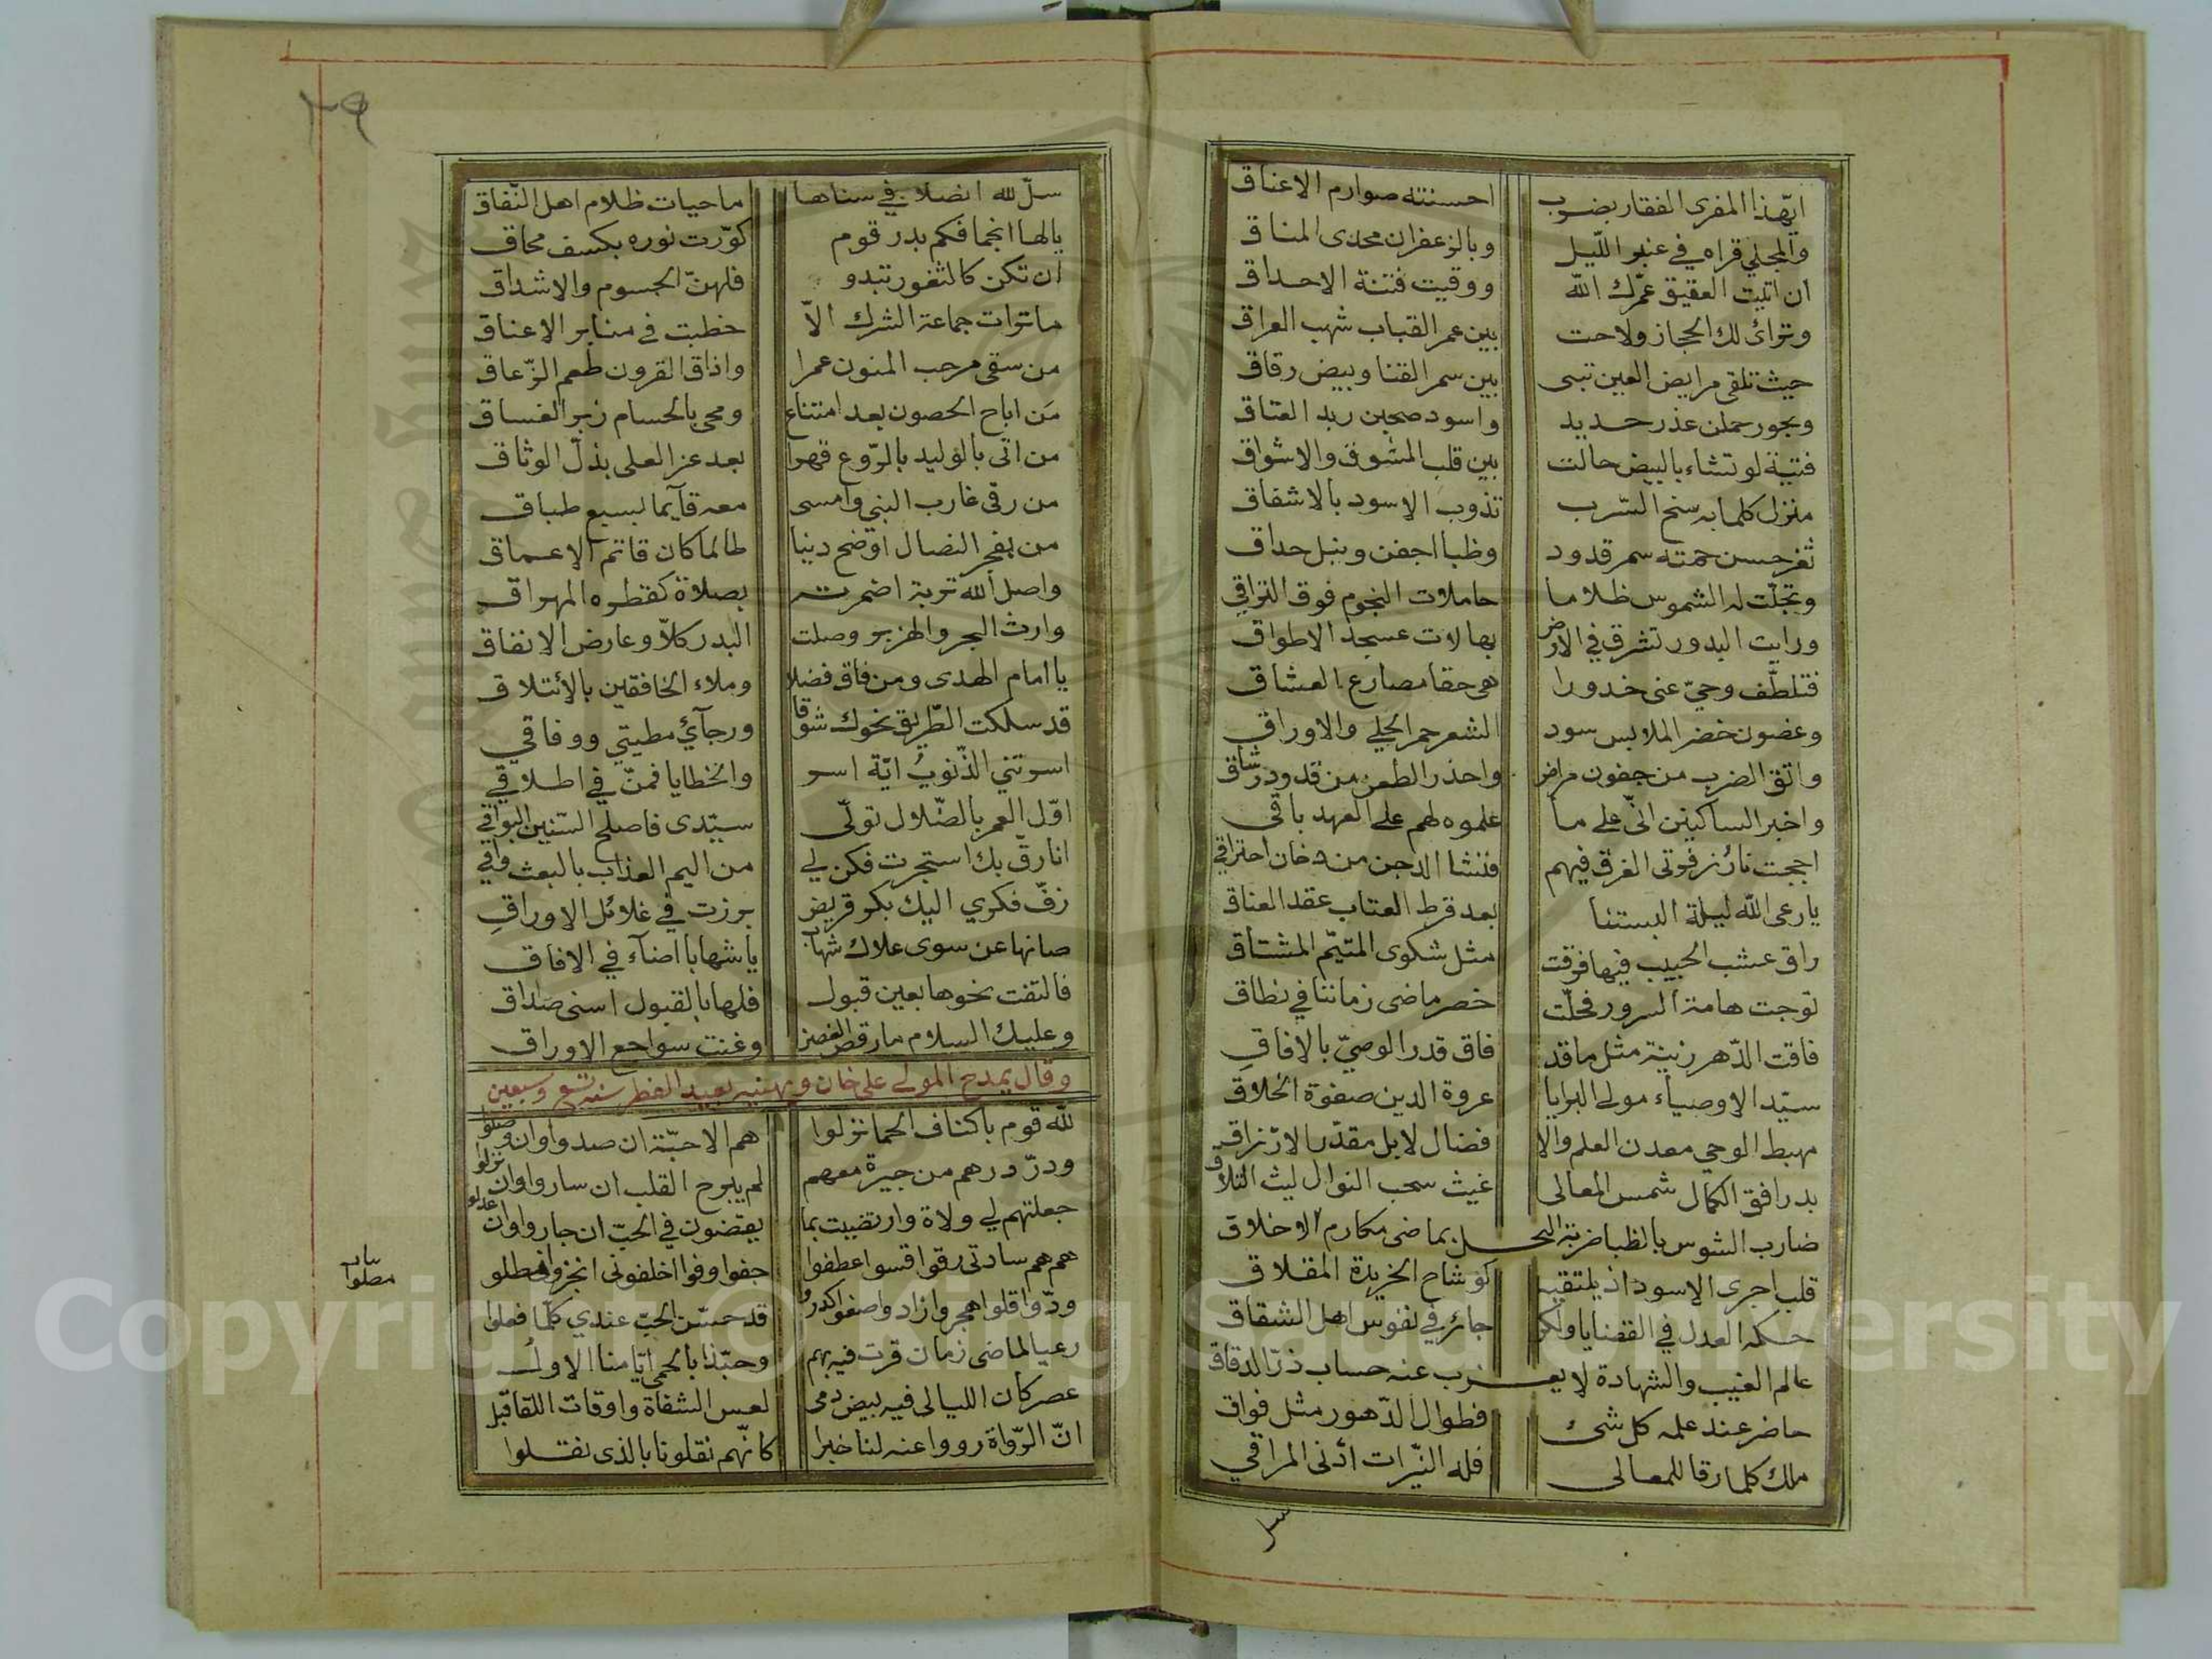 ايّهذا المفرى الفقار بضرب احسنته صوارم الاعناق
والمجلي قراه في عنبر اللّيل وبالزعفران محدى المناق
ان اتيت العقيق عمّرك اللّه ووقيت فتنة الاحداق
وتراى لك الحجاز ولاحت بين عمر القباب شهب العراق
حيث تلقى مرايض العين تبى بين سمر القنا وبيض رقاق
وبجور حملن عذر حديد واسود صحبن ربد العتاق
فتية لو تشاء بالبيض حالت بين قلب المشوق والاشواق
منزل كلما به سنح السّرب تذوب الاسود بالاشفاق
ثغر حسن حمته سمر قدود وظبا اجفن ونبل حداق
وتجلّت له الشموس ظلاما حاملات النجوم فوق التراقي
ورايت البدور تشرق في الارض بهالات عسجد الاطواق
فتلطّف وحيّ عنى خدورا هي حقا مصارع العشاق
وغضون خضر الملابس سود الشعر حمر الحلي والاوراق
واتق الضرب من جفون مراض واحذر الطعن من قدود رشاق
واخبر الساكنين انّي على ما علموه لهم على العهد باقي
اججت نار زفرتى الغرق فيهم فنشا الدجن من دخان احتراقي
يا رعى اللّه ليلة البستنا بعد قرط العتاب عقد العناق
راق عشب الحبيب فيها فرقت مثل شكوى المتيّم المشتاق
توجت هامة السرور فحلّت خصر ماضى زماننا في نطاق
فاقت الدّهر زينة مثل ما قد فاق قدر الوصيّ بالافاق
سيّد الاوصياء مولى البرايا عروة الدين صفوة الخلاق
مهبط الوحي معدن العلم والا فضال لا بل مقدّر الارزاق
بدر افق الكمال شمس المعالى غيث سحب النوال ليث التلاق
ضارب الشوس بالظبا ضربة البخـــل بماضى مكارم الاخلاق
قلب اجرى الاسود اذ يلتقيه كوشاح الخريدة المقلاق
حكمه العدل في القضايا ولكن جائر في نفوس اهل الشقاق
عالم الغيب والشهادة لا يعـــزب عنه حساب ذرّ الدقاق
حاضر عند علمه كل شىء فطوال الدّهور مثل فواق
ملك كلما رقا للمعالى فله النيّرات أدنى المراقي
سل
٣٩
سلّ لله انصلا في سناها ماحيات ظلام اهل النّفاق
يا لها انجما فكم بدر قوم كوّرت نوره بكسف محاق
ان تكن كالثغور تبدو فلهنّ الجسوم والاشداق
ما تراءت جماعة الشرك الاّ خطبت في منابر الاعناق
من سقى مرحب المنون عمرا واذاق القرون طعم الزّعاق
مَن اباح الحصون بعد امتناع ومحى بالحسام زبر الفساق
من اتى بالوليد بالرّوع قهرا بعد عز العلى بذلّ الوثاق
من رقى غارب النبي وامسى معه قآيما لسبع طباق
من بفجر النصال اوضح دنيا طالما كان قاتم الاعماق
واصل الله تربة اضمرته بصلاة كقطره المهراق
وارث البحر والهزبر وصلت البدر كلاّ وعارض الانفاق
يا امام الهدى ومن فاق فضلا وملاء الخافقين بالأئتلاق
قد سلكت الطّريق نحوك شوقا ورجآئي مطيتي ووفاقي
اسرتني الذّنوب ايّة اسر والخطايا فمنّ في اطلاقي
اوّل العمر بالضّلال تولّى سيّدى فاصلح السّنين البواقي
انا رقّ بك استجرت فكن لي من اليم العذاب بالبعث واقي
زفّ فكري اليك بكر قريض برزت في غلائل الاوراقِ
صانها عن سوى علاك شهاب يا شهابا اضآء في الافاق
فالتفت نحوها بعين قبول فلها بالقبول اسنى صداق
وعليك السلام ما رقص الغصن وغنت سواجع الاوراق
وقال يمدح المولى على خان ويهنيه بعيد الفطر سنه تسع وسبعين
للّه قوم باكناف الحما نزلوا هم الاحبّة ان صدوا وان وصلوا
ودرّ درهم من جيرة معهم لم يبرح القلب ان ساروا وان نزلوا
جعلتهم لي ولاة وارتضيت بما يقضون في الحبّ ان جاروا وان عدلوا
هم هم سادتى رقوا قسوا عطفوا جفوا وفوا اخلفونى انجزوا مطلو
ان مطلوا
ودّوا قلوا هجروا زادوا صفوا كدروا قد حسّن الحبّ عندي كلّما فعلوا
رعيا لماضى زمان قرت فيه بهم وحبّذا بالحمى ايّامنا الاول
عصر كأن الليالى فيه بيض دمى لعس الشفاة واوقات اللقا قبل
انّ الرّواة رووا عنه لنا خبرا كانّهم نقلونا بالذى نقلوا
Copyright © King Saud University